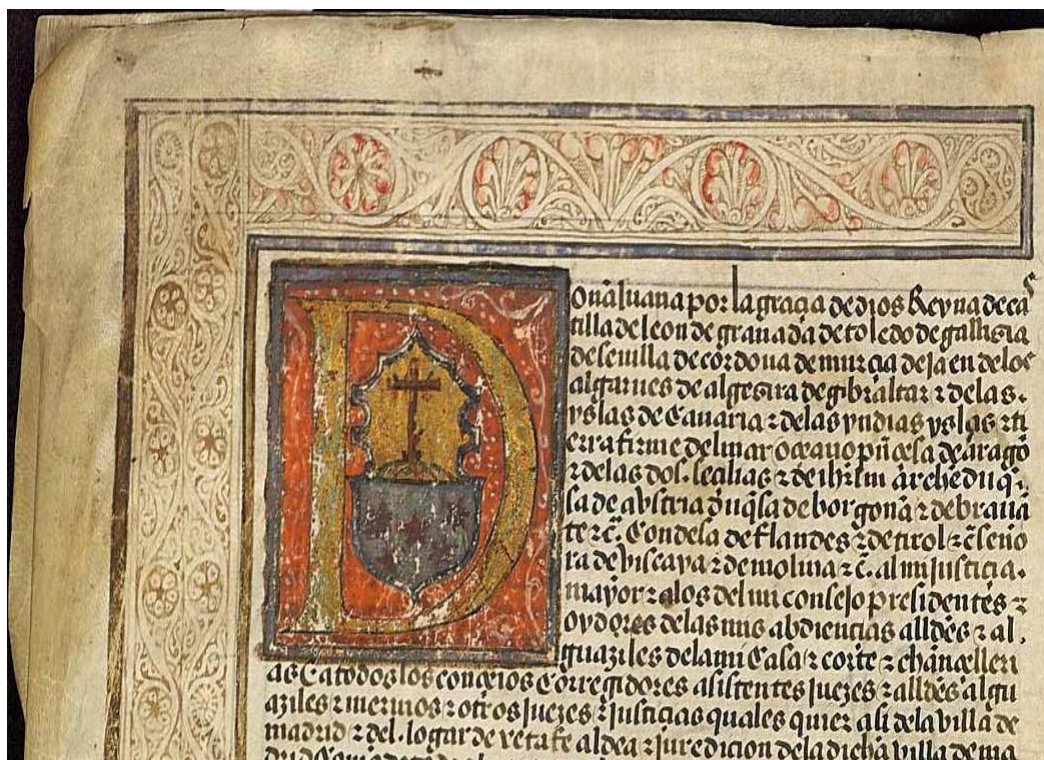 Doña Iuana por la gracia de dios Reyna de cas
tilla de leon de granada de toledo de gallizia
de seuilla de cordoua de murcia de jaen de los
algarues de algezira de gibraltar ⁊ delas
yslas de Canaria ⁊ delas yndias yslas ⁊ ti
erra firme del mar oceano prin̄cesa de aragō
⁊ delas dos secilias ⁊ de ihrlm archeduq̄
sa de abstria duq̄sa de borgoña ⁊ de brauā
te ⁊c̄ Condesa de flandes ⁊ de tirol ⁊c̄ seño
ra de vizcaya ⁊ de molina ⁊c̄ al mi justicia
mayor ⁊ alos del mi consejo presidentes ⁊
oydores delas mis abdiencias alldēs ⁊ al
guaziles dela mi Casa ⁊ corte ⁊ chancelleri
as E a todos los concejos Corregidores asistentes juezes ⁊ alldēs algu
aziles ⁊ merinos ⁊ otros juezes ⁊ justicias quales quier asi dela villa de
madrid ⁊ del logar de xetafe aldea ⁊ juredicion dela dicha villa de ma